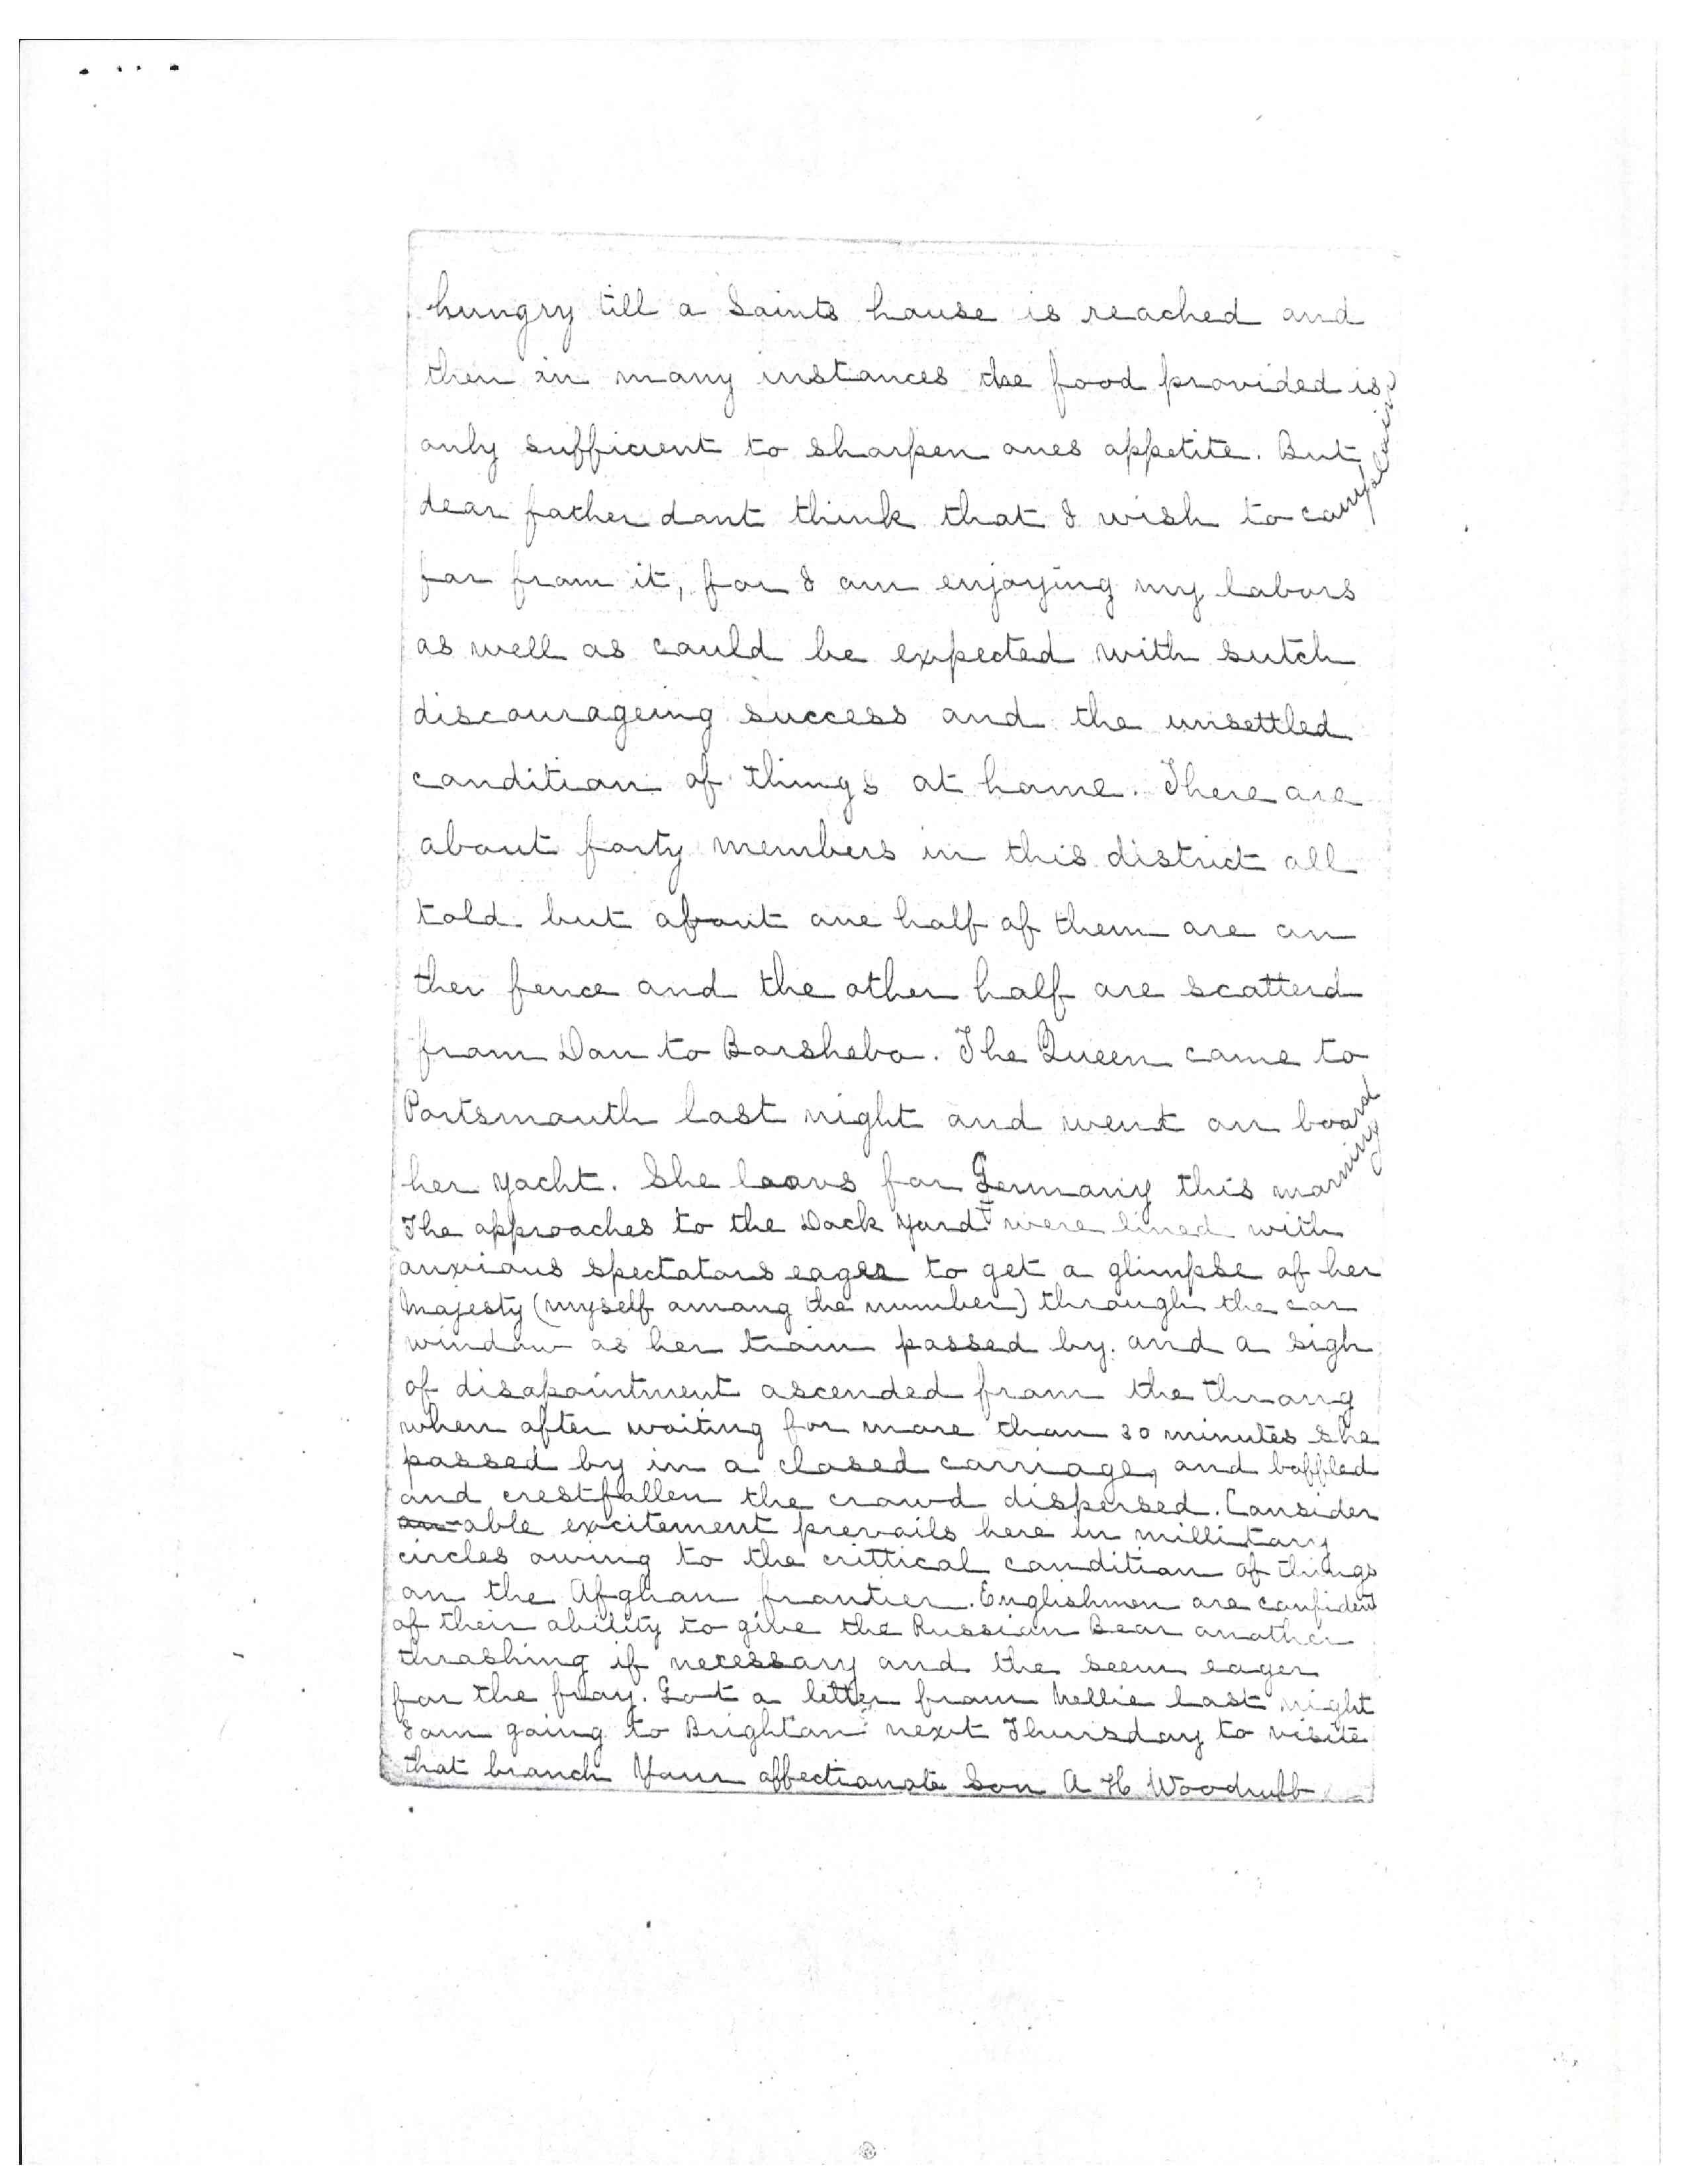 hungry till a Saints house is reached and
then in many instances the food provided is
only sufficient to sharpen ones appetite. But
dear father dont think that I wish to complain
far from it, for I am enjoying my labors
as well as could be expected with sutch
discourageing success and the unsettled
condition of things at home. There are
about forty members in this district all
told but about one half of them are on
ther fence and the other half are scatterd
from Dan to Barsheba. The Queen came to
Portsmouth last night and went on board
her yacht. She leavs for Germany this morning
The approaches to the Dock Yard were lined with
anxious spectators eager to get a glimpse of her
Majesty (myself among the number) through the car
window as her train passed by. and a sigh
of disapointment ascended from the throng
when after waiting for more than 30 minutes she
passed by in a closed carriage, and baffled
and crestfallen the crowd dispersed. Consider
able excitement prevails here in millitary
circles owing to the crittical condition of things
on the Afghan frontier. Englishmen are confident
of their ability to give the Russian Bear another
thrashing if necessary and the seem eager
for the fray. Got a letter from Nellie last night
I am going to Brighton next Thursday to visite
that branch Your affectionate Son A H Woodruff